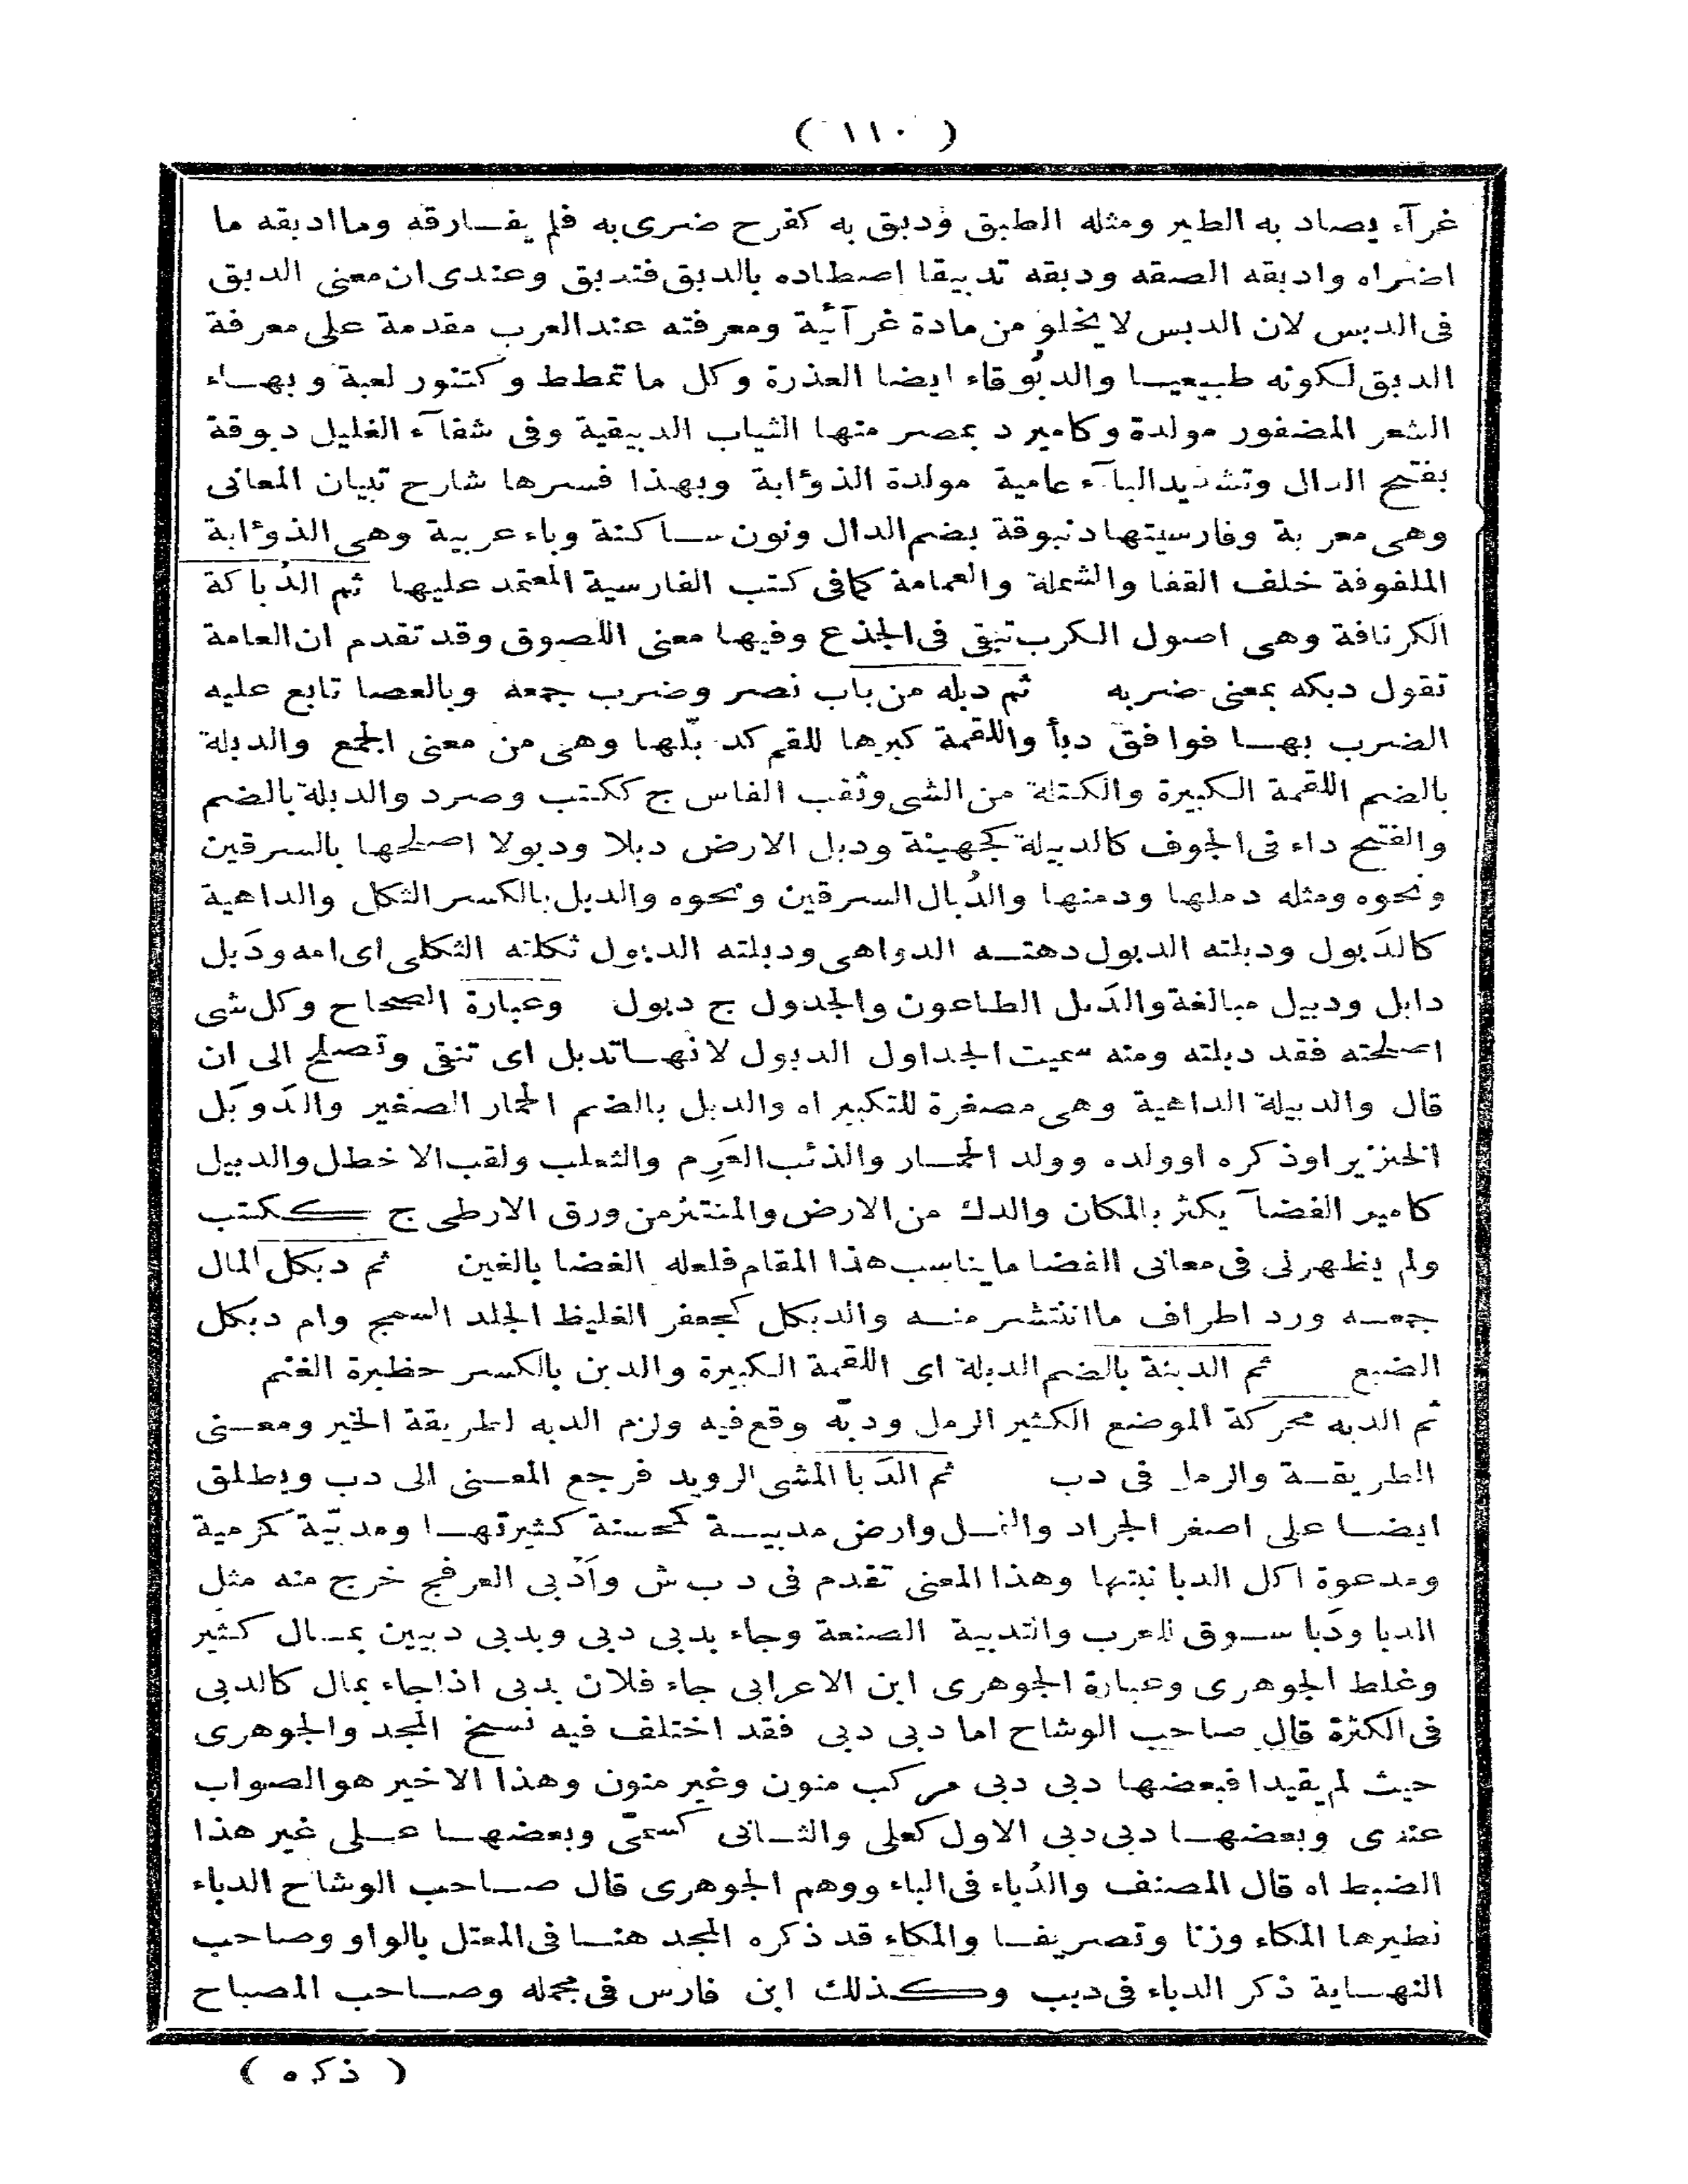 ( ١١٠ )
غرآء يصاد به الطير ومثله الطبق ودبق به كفرح ضرى به فلم يفارقه وما ادبقه ما
اضراه وادبقه الصقه ودبقه تدبيقا اصطاده بالدبق فتدبق وعندى ان معنى الدبق
فى الدبس لان الدبس لا يخلو من مادة غرآئية ومعرفته عند العرب مقدمة على معرفة
الدبق لكونه طبيعيا والدبُوقاء ايضا العذرة وكل ما تمطط وكتنور لعبة وبهاء
الشعر المضفور مولدة وكامير د بمصر منها الثياب الدبيقية وفى شفآء الغليل دبوقة
بفتح الدال وتشديد البآء عامية مولدة الذؤابة وبهذا فسرها شارح تبيان المعانى
وهى معربة وفارسيتها دنبوقة بضم الدال ونون ساكنة وباء عربية وهى الذؤابة
الملفوفة خلف القفا والشملة والعمامة كما فى كتب الفارسية المعتمد عليها ثم الدُباكة
الكرنافة وهى اصول الكرب تبقى فى الجذع وفيها معنى اللصوق وقد تقدم ان العامة
تقول دبكه بمعنى ضربه ثم دبله من باب نصر وضرب جمعه وبالعصا تابع عليه
الضرب بها فوافق دبأ واللقمة كبرها للقم كدبّلها وهى من معنى الجمع والدبلة
بالضم اللقمة الكبيرة والكتلة من الشى وثقب الفاس ج ككتب وصرد والدبلة بالضم
والفتح داء فى الجوف كالدبيلة كجهينة ودبل الارض دبلا ودبولا اصلحها بالسرقين
ونحوه ومثله دملها ودمنها والدُبال السرقين ونحوه والدبل بالكسر الثكل والداهية
كالدَبول ودبلته الدبول دهته الدواهى ودبلته الدبول ثكلته الثكلى اى امه ودَبل
دابل ودبيل مبالغة والدَبل الطاعون والجدول ج دبول وعبارة الصحاح وكل شى
اصلحته فقد دبلته ومنه سميت الجداول الدبول لانها تدبل اى تنقى وتصلح الى ان
قال والدبيلة الداهية وهى مصغرة للتكبير اه والدبل بالضم الحمار الصغير والدَوبَل
الخنزير او ذكره او ولده وولد الحمار والذئب العَرِم والثعلب ولقب الاخطل والدبيل
كامير الفضآ يكثر بالمكان والدك من الارض والمنتثر من ورق الارطى ج ككتب
ولم يظهر لى فى معانى الفضا ما يناسب هذا المقام فلعله الغضا بالغين ثم دبكل المال
جمعه ورد اطراف ما انتشر منه والدبكل كجعفر الغليظ الجلد السمج وام دبكل
الضبع ثم الدبنة بالضم الدبلة اى اللقمة الكبيرة والدبن بالكسر حظيرة الغنم
ثم الدبه محركة الموضع الكثير الرمل ودبّه وقع فيه ولزم الدبه لطريقة الخير ومعنى
الطريقة والرمل فى دب ثم الدَبا المشى الرويد فرجع المعنى الى دب ويطلق
ايضا على اصغر الجراد والنمل وارض مدبية كمحسنة كثيرتها ومدبيّة كمرمية
ومدعوة اكل الدبا نبتها وهذا المعنى تقدم فى د ب ش وأدْبى العرفج خرج منه مثل
الدبا ودَبا سوق للعرب والتدبية الصنعة وجاء بدبى دبى وبدبى دبيين بمال كثير
وغلط الجوهرى وعبارة الجوهرى ابن الاعرابى جاء فلان بدبى اذا جاء بمال كالدبى
فى الكثرة قال صاحب الوشاح اما دبى دبى فقد اختلف فيه نسخ المجد والجوهرى
حيث لم يقيدا فبعضها دبى دبى مركب منون وغير منون وهذا الاخير هو الصواب
عندى وبعضها دبى دبى الاول كعلى والثانى كسمىّ وبعضها على غير هذا
الضبط اه قال المصنف والدُباء فى الباء ووهم الجوهرى قال صاحب الوشاح الدباء
نظيرها المكاء وزنا وتصريفا والمكاء قد ذكره المجد هنا فى المعتل بالواو وصاحب
النهاية ذكر الدباء فى دبب وكذلك ابن فارس فى مجمله وصاحب المصباح
( ذكره )